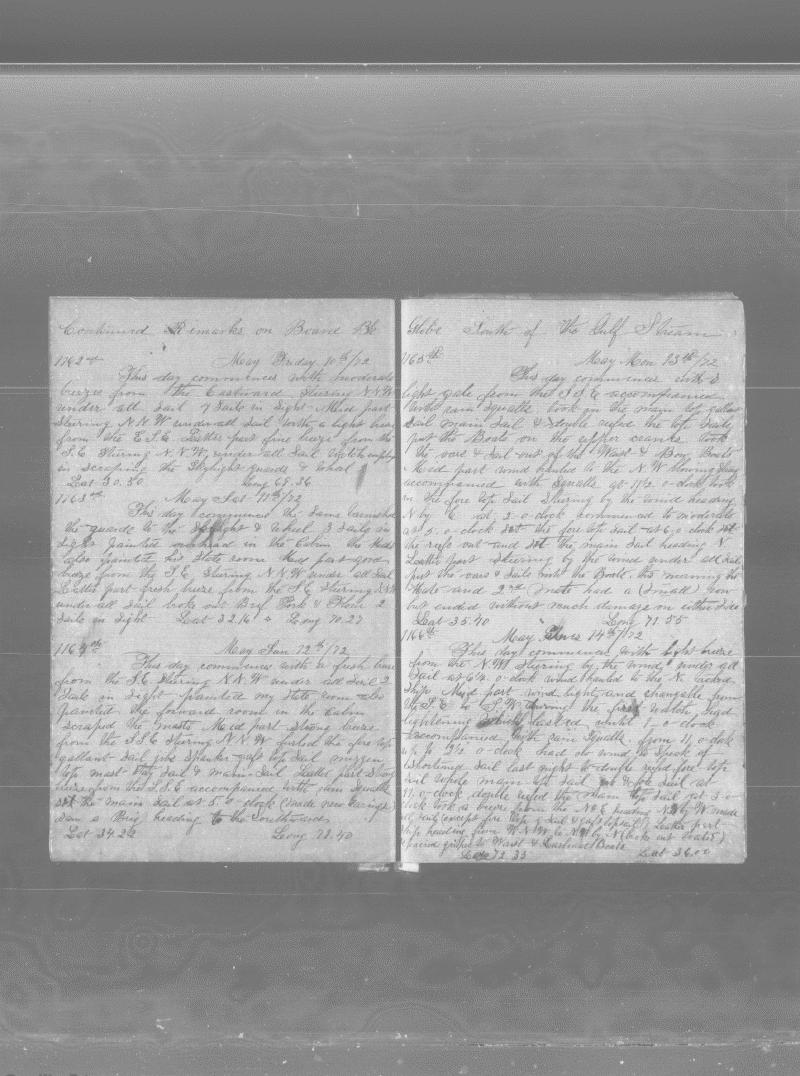 Continued Remarks on Board Bk
1162nd May Friday 10th/72
This day commences with moderate
breeze from the Eastward Stering N N W
under all Sail 7 Sails in Sight Mid part
Stering N N W under all Sail with a light breeze
from the E S E Latter part fine breeze from the
S E Stering N N W under all Sail Watch employed
in scraping the Skylight guards & Wheel
Lat 30.30 Long 69.36
1163rd May Sat 11th/72
This day commences the Same varnished
the guards to the Skylight & Wheel 3 Sails in
Sight Painted overhead in the Cabin the Mate
also painted his State room Mid part good
breeze from the S E Stering N N W under all Sail
Latter part fresh breeze from the S E Stering N N W
under all Sail broke out Beef Pork & Flour 2
Sails in Sight Lat 32.16 Long 70.27
1164th May Sun 12th/72
This day commences with a fresh breeze
from the S E Stering N N W under all Sail 2
Sails in Sight painted my State room also
painted the forward room in the Cabin
scraped the masts Mid part Strong breeze
from the S S E Stering N N W furled the fore top
gallant Sail jibe Spanker gaft top Sail mizzen
top mast Stay Sail & main Sail Latter part Strong
breeze from the S S E accompanied with rain Squalls
set the main Sail at 5 o-clock (made new earings)
Saw a Brig heading to the Southward
Lat 34.22 Long 72.40
Globe South of the Gulf Stream
1165th May Mon 13th/72
This day commences with a
light gale from the S S E accompanied
with rain Squalls took in the main top gallant
Sail main Sail & double reefed the top Sails
put the Boats on the upper cranes took
the oars & Sail out of the Waist & Bow Boats
Mid part wind hauled to the N. W blowing
accompanied with Squalls at 11½ o-clock took
in the fore top Sail Stering by the wind heading
N by E at 3 o-clock commenced to moderate
at 5 o-clock Set the fore top Sail at 6 o clock let
the reefs out and Set the main Sail heading N
Latter part Stering by the wind under all Sail
put the oars & Sails into the Boats this morning the
Mate and 2nd mate had a (Small) row
but ended without much damage on either Side
Lat 35.40 Long 71 55
1166th May 14th/72
This day commences with light breeze
from the N. W Stering by the wind under all
Sail at 6¼ o-clock wind hauled to the N. tacked
Ship Mid part wind light and changable from
the S. E to S. W during the first watch had
lightening which lasted until 1 o-clock
accompanied with rain Squalls from 11 o-clock
up to 2½ o-clock had no wind to Speak of
Shortened Sail last night to double reefed fore top
Sail whole main top Sail & fore Sail at
11 o-clock double reefed the main top Sail at 3 o-
clock took a breeze from the N. E heading N. W by W made
all Sail (except fore top g Sail & gaf topsail) Latter part
Ship heading from W N W to N. W by N
repaired gripes to Waist & Larboard Boats
Long 72 33 Lat 36.00